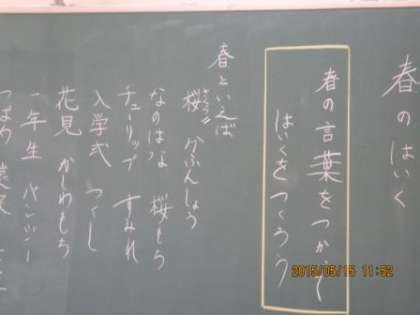 春のはいく
春の言葉をつかって
はいくをつくろう
春といえば
桜 かふんしょう
なのはな 桜もち
チューリップ すみれ
入学式 つくし
花見 かしわもち
一年生 パンジー
2015/05/15 11:52